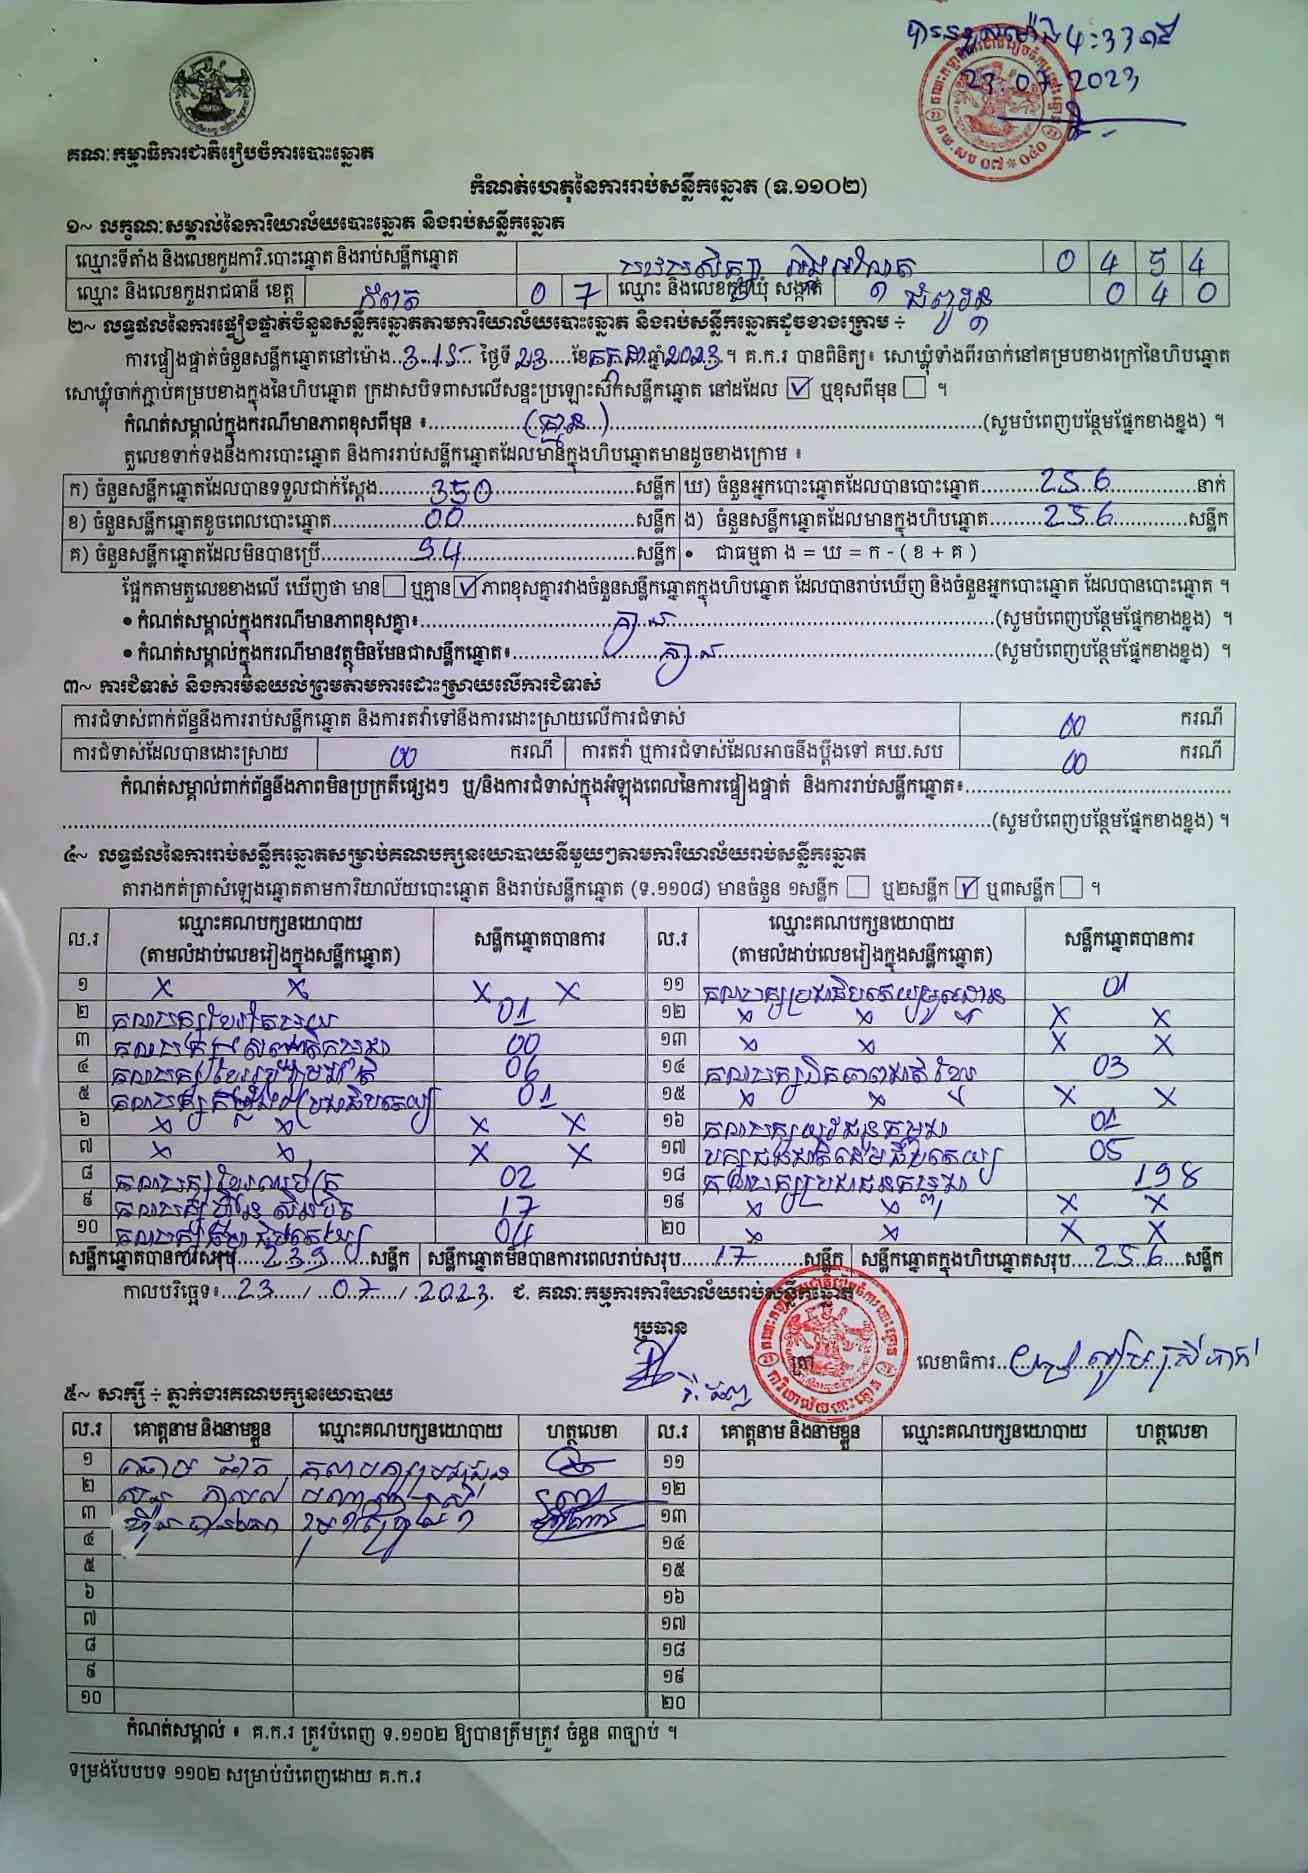 4:33
23.07.2023
គណៈកម្មាធិការជាតិរៀបចំការបោះឆ្នោត
កំណត់ហេតុនៃការរាប់សន្លឹកឆ្នោត (ទ.១១០២)
១~ លក្ខណៈសម្គាល់នៃការិយាល័យបោះឆ្នោត និងរាប់សន្លឹកឆ្នោត
ឈ្មោះទីតាំង និងលេខកូដការិ.បោះឆ្នោត និងរាប់សន្លឹកឆ្នោត 0 4 5 4
ឈ្មោះ និងលេខកូដរាជធានី ខេត្ត កំពត 0 7 ឈ្មោះ និងលេខកូដឃុំ សង្កាត់ 0 4 0
២~ លទ្ធផលនៃការផ្ទៀងផ្ទាត់ចំនួនសន្លឹកឆ្នោតតាមការិយាល័យបោះឆ្នោត និងរាប់សន្លឹកឆ្នោតដូចខាងក្រោម ÷
ការផ្ទៀងផ្ទាត់ចំនួនសន្លឹកឆ្នោតនៅម៉ោង 3:15 ថ្ងៃទី 23 ខែ កក្កដា ឆ្នាំ 2023 ។ គ.ក.រ បានពិនិត្យ៖ សោឃ្លុំទាំងពីរចាក់នៅគម្របខាងក្រៅនៃហិបឆ្នោត
សោឃ្លុំចាក់ភ្ជាប់គម្របខាងក្នុងនៃហិបឆ្នោត ក្រដាសបិទពាសលើសន្ទះប្រឡោះសៀកសន្លឹកឆ្នោត នៅដដែល ☑ ឬខុសពីមុន ☐ ។
កំណត់សម្គាល់ក្នុងករណីមានភាពខុសពីមុន ៖ (គ្មាន) (សូមបំពេញបន្ថែមផ្នែកខាងខ្នង) ។
តួលេខទាក់ទងនឹងការបោះឆ្នោត និងការរាប់សន្លឹកឆ្នោតដែលមានក្នុងហិបឆ្នោតមានដូចខាងក្រោម ៖
ក) ចំនួនសន្លឹកឆ្នោតដែលបានទទួលជាក់ស្ដែង 350 សន្លឹក ឃ) ចំនួនអ្នកបោះឆ្នោតដែលបានបោះឆ្នោត 256 នាក់
ខ) ចំនួនសន្លឹកឆ្នោតខូចពេលបោះឆ្នោត 00 សន្លឹក ង) ចំនួនសន្លឹកឆ្នោតដែលមានក្នុងហិបឆ្នោត 256 សន្លឹក
គ) ចំនួនសន្លឹកឆ្នោតដែលមិនបានប្រើ 94 សន្លឹក • ជាធម្មតា ង = ឃ = ក - ( ខ + គ )
ផ្អែកតាមតួលេខខាងលើ ឃើញថា មាន ☐ ឬគ្មាន ☑ ភាពខុសគ្នារវាងចំនួនសន្លឹកឆ្នោតក្នុងហិបឆ្នោត ដែលបានរាប់ឃើញ និងចំនួនអ្នកបោះឆ្នោត ដែលបានបោះឆ្នោត ។
• កំណត់សម្គាល់ក្នុងករណីមានភាពខុសគ្នា៖ គ្មាន (សូមបំពេញបន្ថែមផ្នែកខាងខ្នង) ។
• កំណត់សម្គាល់ក្នុងករណីមានវត្ថុមិនមែនជាសន្លឹកឆ្នោត៖ គ្មាន (សូមបំពេញបន្ថែមផ្នែកខាងខ្នង) ។
៣~ ការជំទាស់ និងការមិនយល់ព្រមតាមការដោះស្រាយលើការជំទាស់
ការជំទាស់ពាក់ព័ន្ធនឹងការរាប់សន្លឹកឆ្នោត និងការតវ៉ាទៅនឹងការដោះស្រាយលើការជំទាស់ 00 ករណី
ការជំទាស់ដែលបានដោះស្រាយ 00 ករណី ការតវ៉ា ឬការជំទាស់ដែលអាចនឹងប្ដឹងទៅ គឃ.សប 00 ករណី
កំណត់សម្គាល់ពាក់ព័ន្ធនឹងភាពមិនប្រក្រតីផ្សេងៗ ឬ/និងការជំទាស់ក្នុងអំឡុងពេលនៃការផ្ទៀងផ្ទាត់ និងការរាប់សន្លឹកឆ្នោត៖
(សូមបំពេញបន្ថែមផ្នែកខាងខ្នង) ។
៤~ លទ្ធផលនៃការរាប់សន្លឹកឆ្នោតសម្រាប់គណបក្សនយោបាយនីមួយៗតាមការិយាល័យរាប់សន្លឹកឆ្នោត
តារាងកត់ត្រាសំឡេងឆ្នោតតាមការិយាល័យបោះឆ្នោត និងរាប់សន្លឹកឆ្នោត (ទ.១១០៨) មានចំនួន ១សន្លឹក ☐ ឬ២សន្លឹក ☑ ឬ៣សន្លឹក ☐ ។
ល.រ ឈ្មោះគណបក្សនយោបាយ (តាមលំដាប់លេខរៀងក្នុងសន្លឹកឆ្នោត) សន្លឹកឆ្នោតបានការ ល.រ ឈ្មោះគណបក្សនយោបាយ (តាមលំដាប់លេខរៀងក្នុងសន្លឹកឆ្នោត) សន្លឹកឆ្នោតបានការ
១ X X X X ១១ គណបក្សប្រជាធិបតេយ្យមូលដ្ឋាន 01
២ គណបក្សខ្មែររួបរួម 01 ១២ X X X X
៣ 00 ១៣ X X X X
៤ គណបក្សខ្មែររួបរួមជាតិ 06 ១៤ គណបក្សឯកភាពជាតិខ្មែរ 03
៥ គណបក្សកម្លាំងប្រជាធិបតេយ្យ 01 ១៥ X X X X
៦ X X X X ១៦ គណបក្សយុវជនកម្ពុជា 01
៧ X X X X ១៧ 05
៨ គណបក្សខ្មែរអភិរក្ស 02 ១៨ គណបក្សប្រជាជនកម្ពុជា 198
៩ គណបក្សហ៊្វុនស៊ិនប៉ិច 17 ១៩ X X X X
១០ 04 ២០ X X X X
សន្លឹកឆ្នោតបានការសរុប 239 សន្លឹក សន្លឹកឆ្នោតមិនបានការពេលរាប់សរុប 17 សន្លឹក សន្លឹកឆ្នោតក្នុងហិបឆ្នោតសរុប 256 សន្លឹក
កាលបរិច្ឆេទ៖ 23 / 07 / 2023 ជ. គណៈកម្មការការិយាល័យរាប់សន្លឹកឆ្នោត
ប្រធាន ត្រា លេខាធិការ
៥~ សាក្សី ÷ ភ្នាក់ងារគណបក្សនយោបាយ
ល.រ គោត្តនាម និងនាមខ្លួន ឈ្មោះគណបក្សនយោបាយ ហត្ថលេខា ល.រ គោត្តនាម និងនាមខ្លួន ឈ្មោះគណបក្សនយោបាយ ហត្ថលេខា
១ ១១
២ ១២
៣ ១៣
៤ ១៤
៥ ១៥
៦ ១៦
៧ ១៧
៨ ១៨
៩ ១៩
១០ ២០
កំណត់សម្គាល់ ៖ គ.ក.រ ត្រូវបំពេញ ទ.១១០២ ឱ្យបានត្រឹមត្រូវ ចំនួន ៣ច្បាប់ ។
ទម្រង់បែបបទ ១១០២ សម្រាប់បំពេញដោយ គ.ក.រ